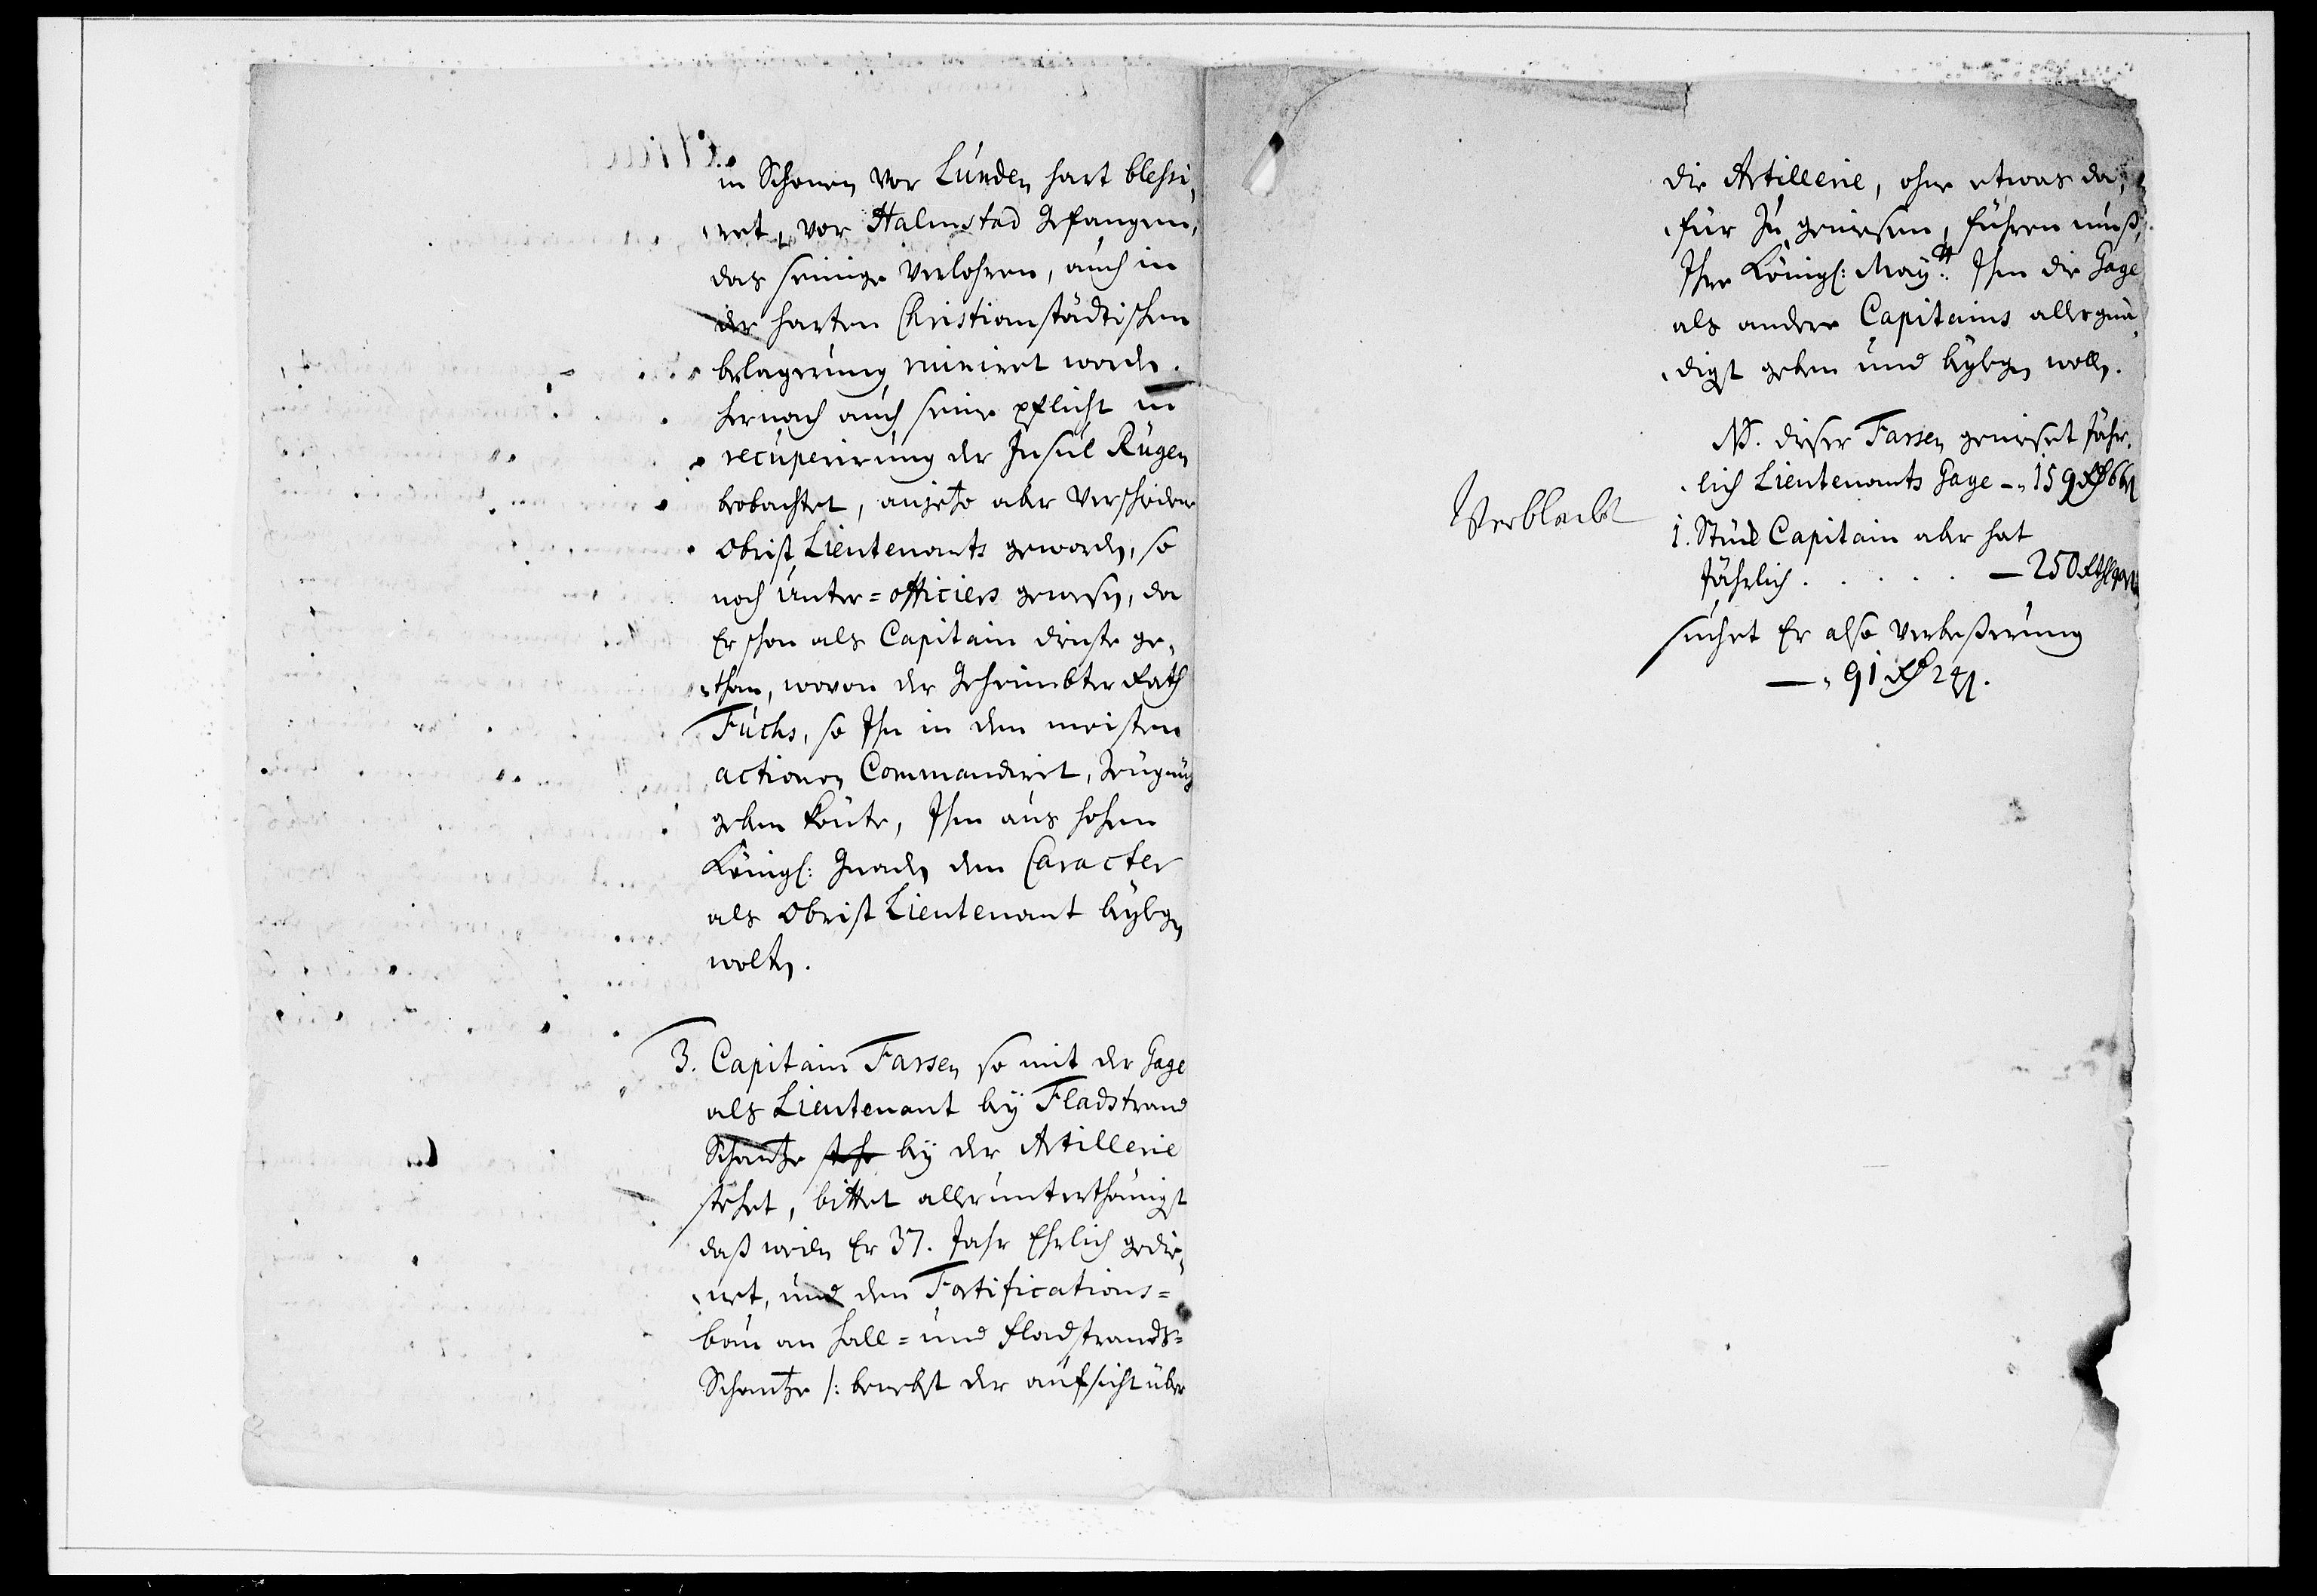 in Schonen vor Lunden hart blessi,
,ret, vor Halmstad Gefangen,
das seinige Verlohren, auch in
der harten Christianstädtischen
belagerung ruiniret worde.
hernach auch seine pflicht in
recuperirung der Insul Rügen
beobachtet, anjetzo aber Verschiedene
Obrist Lieutenants geworden, so
noch Unter=officiers gewesen, da
Er schon als Capitain dienste ge,
,than, wovon der Geheimbter Rath
Fuchs, so Ihn in den meisten
actionen Commandiret, Zeugnüß
geben könte, Ihm aus hohen
Königl: Gnaden den Caracter
als Obrist Lieutenant beylegen
wolten.
3. Capitain Farsen so mit der Gage
als Lieutenant bey Fladstrand
Schantze stehe bey der Artillerie
stehet, bittet allerunterthänigst
daß weilen Er 37. Jahr Ehrlich gedie,
,net, und den Fortifications=
bau an Hall= und Fladstrands=
Schantze /: benebst der aufsicht über
die Artillerie, ohne etwas da,
,für Zu geniesen, führen muß,
Ihre Königl: May:tt Ihm die Gage
als andere Capitains allergnä,
,digst geben und beylegen wollen.
NB. dieser Farsen genieset Jähr,
,lich Lieutenants Gage —, 159 Rth 66 ß
Verbleibt
1. Stück Capitain aber hat
Jährlich . . . . . — 250 Rthl 90 ß
suchet Er also Verbeßerung
—, 91 Rth 24 ß.